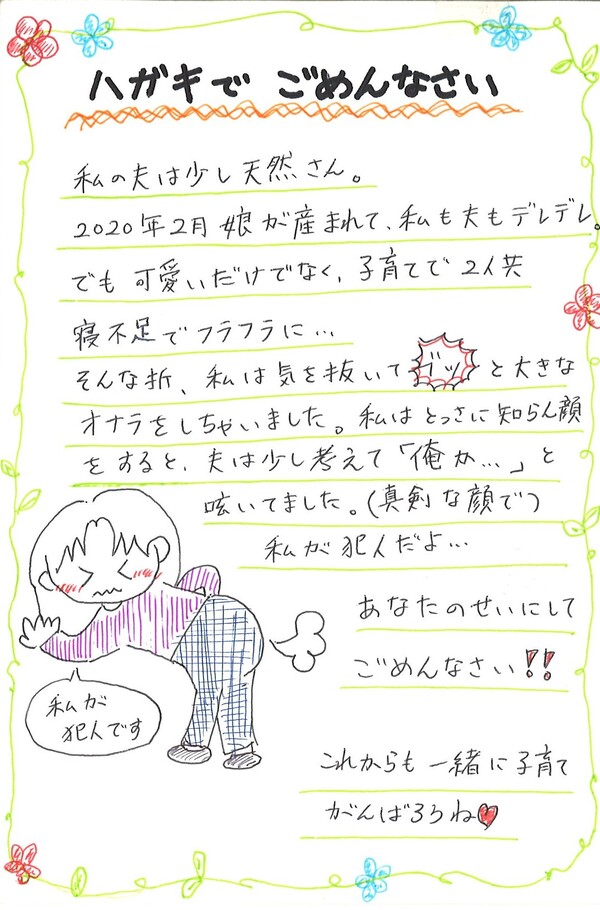 ハガキで ごめんなさい
私の夫は少し天然さん。
2020年2月 娘が産まれて、私も夫もデレデレ。
でも 可愛いだけでなく、子育てで 2人共
寝不足でフラフラに…
そんな折、私は気を抜いて ブッ と大きな
オナラをしちゃいました。私はとっさに知らん顔
をすると、夫は少し考えて「俺か…」と
呟いてました。(真剣な顔で)
私が犯人だよ…
あなたのせいにして
ごめんなさい!!
私が
犯人です
これからも 一緒に子育て
がんばろうね